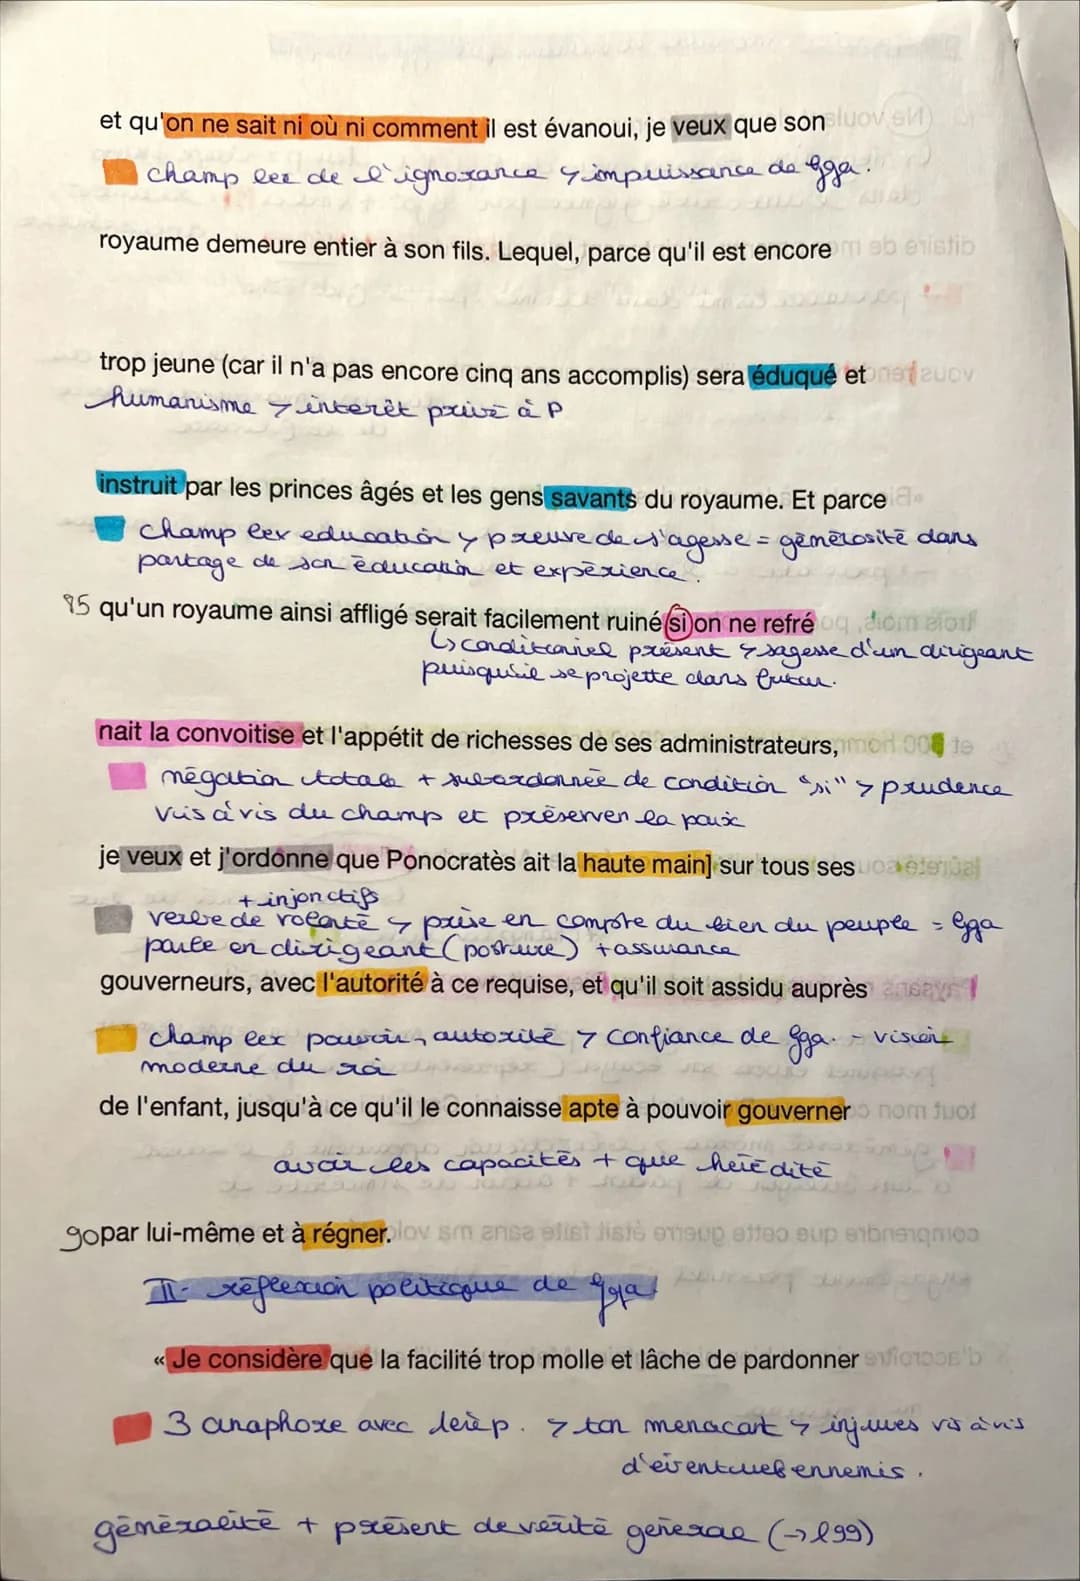 et qu'on ne sait ni où ni comment il est évanoui, je veux que son
champ lex de l'ignorance → impuissance de Gga.
royaume demeure entier à son fils. Lequel, parce qu'il est encore
trop jeune (car il n'a pas encore cinq ans accomplis) sera éduqué et
humanisme → interêt privé à P
instruit par les princes âgés et les gens savants du royaume. Et parce
champ lex education → preuve de s'agesse = générosité dans
partage de son éducation et expérience.
85 qu'un royaume ainsi affligé serait facilement ruiné si on ne refré
↳ conditionnel présent → sagesse d'un dirigeant
puisqu'il se projette dans futur.
nait la convoitise et l'appétit de richesses de ses administrateurs,
négation totale + subordonnée de condition "si" → prudence
vis à vis du champ et préserver la paix
je veux et j'ordonne que Ponocratès ait la haute main] sur tous ses
+ injonctifs
verbe de volonté → prise en compte du bien du peuple = Gga
parle en dirigeant (posture) + assurance
gouverneurs, avec l'autorité à ce requise, et qu'il soit assidu auprès
champ lex pouvoir, autorité → confiance de Gga. - vision
moderne du roi
de l'enfant, jusqu'à ce qu'il le connaisse apte à pouvoir gouverner
avoir les capacités + que hérédité
90 par lui-même et à régner.
II- réflexion politique de Gga
« Je considère que la facilité trop molle et lâche de pardonner
3 anaphore avec p. → ton menacant → injures vis à vis
d'éventuels ennemis.
généralité + présent de vérité générae (→ l99)